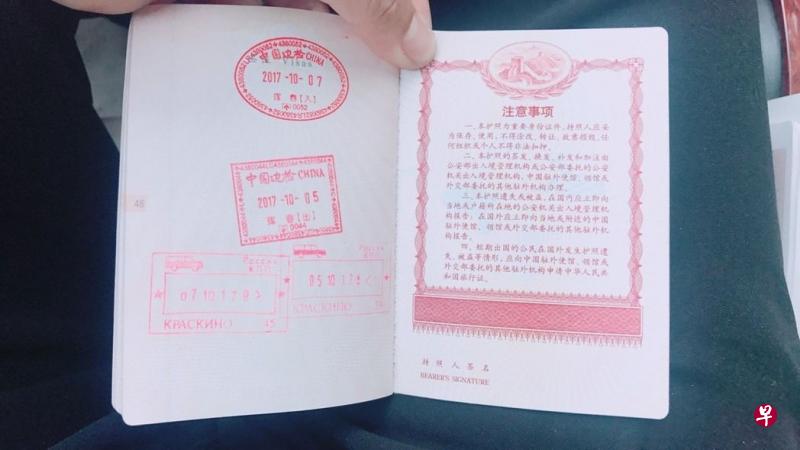 中国边检 CHINA
Visas
2017-10-07
珲春[入]
0052
中国边检 CHINA
2017-10-05
珲春[出]
0044
46
Россия
Россия
07 10 17
05 10 17
КРАСКИНО 45
КРАСКИНО
注意事项
一、本护照为重要身份证件，持照人应妥
为保存、使用，不得涂改、转让、故意损毁，任
何组织或个人不得非法扣押。
二、本护照的签发、换发、补发和加注由
公安部出入境管理机构或公安部委托的公安
机关出入境管理机构，中国驻外使馆、领馆或
外交部委托的其他驻外机构办理。
三、本护照遗失或被盗，在国内应立即向
当地或户籍所在地的公安机关出入境管理机
构报告；在国外应立即向当地或附近的中国
驻外使馆、领馆或外交部委托的其他驻外机
构报告。
四、短期出国的公民在国外发生护照遗
失、被盗等情形，应向中国驻外使馆、领馆或
外交部委托的其他驻外机构申请中华人民共
和国旅行证。
持照人签名
BEARER'S SIGNATURE
早